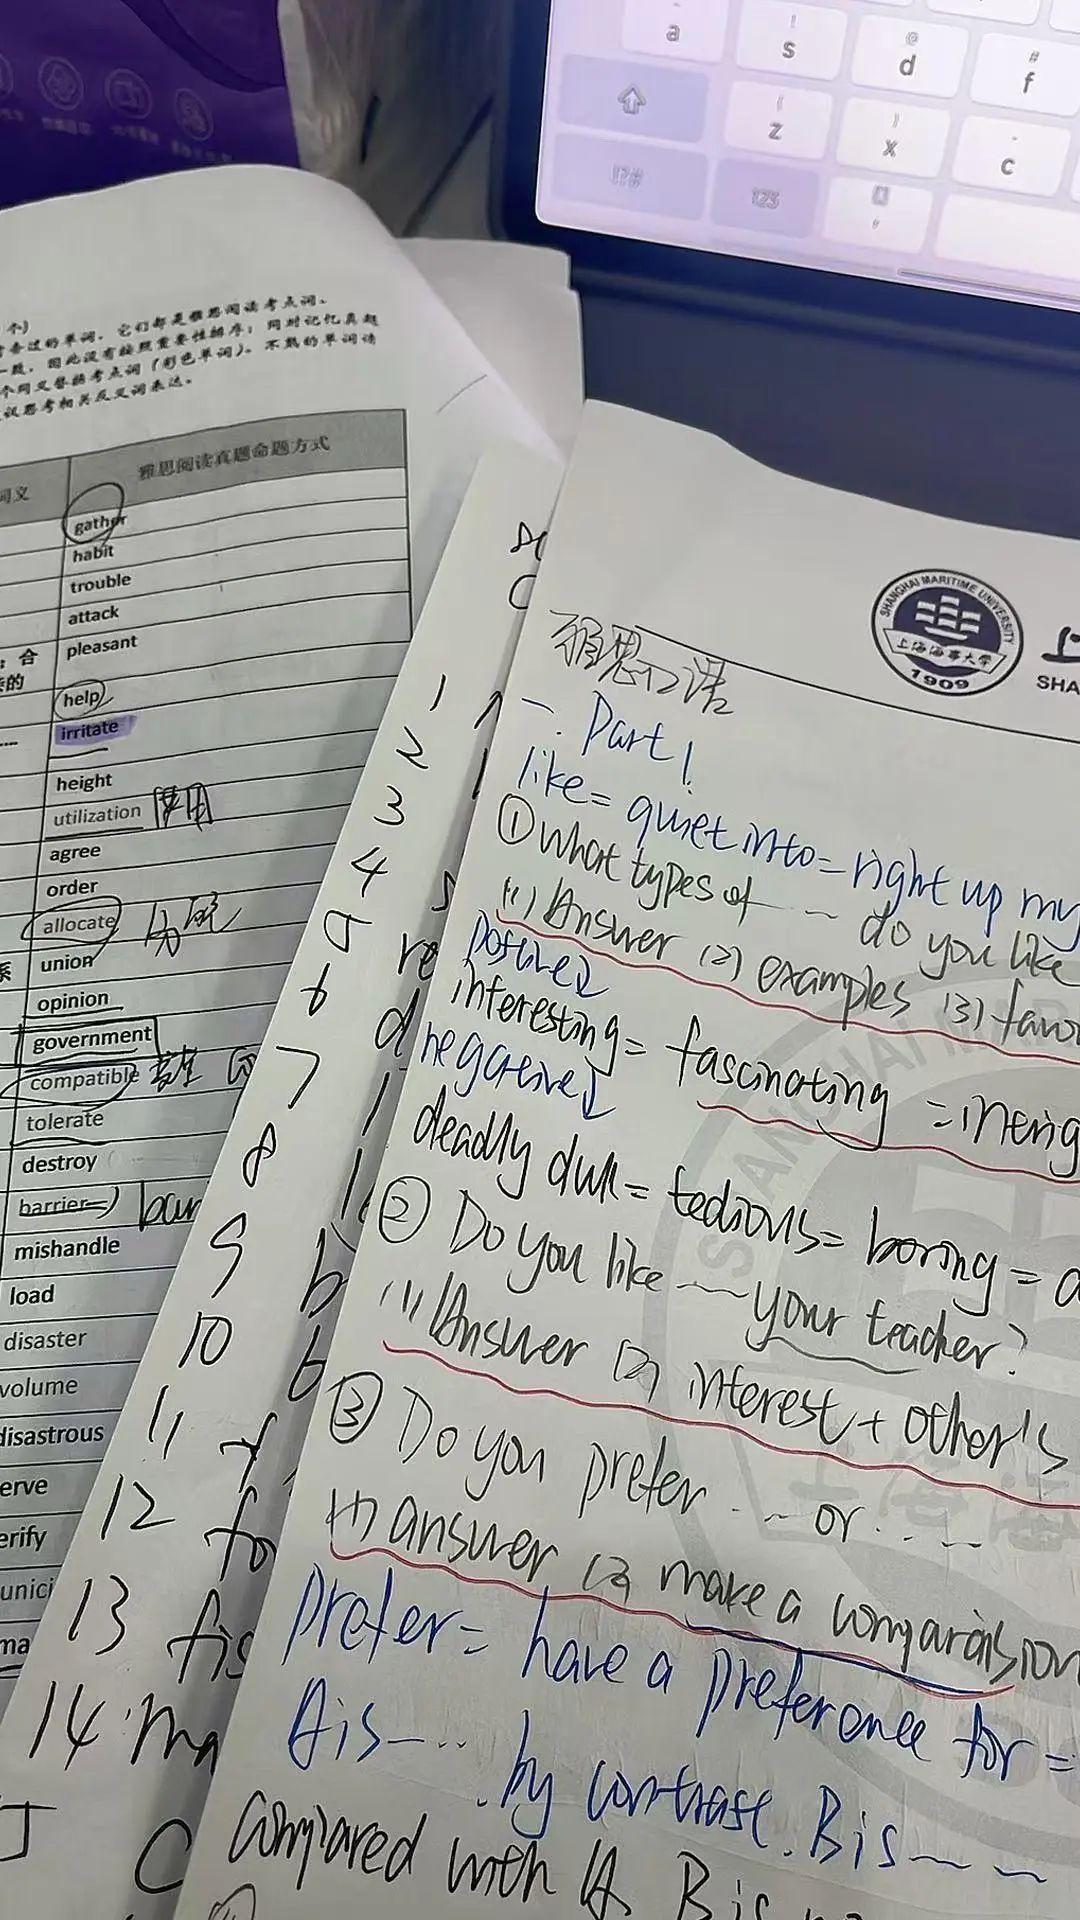 a
!
s
@
d
#
f
(
z
)
x
-
c
!?#
123
个)
它们都是雅思阅读考点词。
因此没有按照重要性排序；同时记忆真题
个同义替换考点词（彩色单词）。不熟的单词请
议思考相关反义词表达。
词义
雅思阅读真题命题方式
gather
habit
trouble
attack
；合
pleasant
的
help
irritate
height
utilization 使用
agree
order
allocate 分配
系
union
opinion
government
compatible
tolerate
destroy
barrier
mishandle
load
disaster
volume
disastrous
erve
erify
unici
ma
1
2
3
4
5
6
7
8
9
10
11
12 fo
13 fis
14 ma
re
SHANGHAI MARITIME UNIVERSITY
上海海事大学
1909
SHA
雅思口语
一 Part 1
like = quiet into = right up my
① What types of ...... do you like
(1) Answer (2) examples (3) favo
positive↓
interesting = fascinating =
neggative↓
deadly dull = tedious = boring = a
② Do you like —— your teacher?
(1) Answer (2) interest + other's
③ Do you prefer ...... or ......
(1) answer (2) make a comparaision
prefer = have a preference for =
A is —... by contrast. B is ——
compared with A B is
SHANGHAI MAR